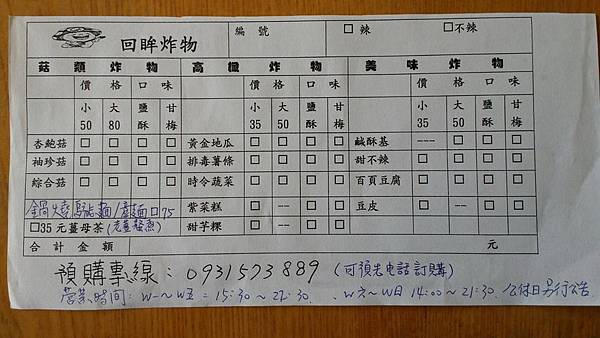 回眸炸物 編號 □ 辣 □不辣
菇類炸物 高纖炸物 美味炸物
價格 口味 價格 口味 價格 口味
小50 大80 鹽酥 甘梅 小35 大50 鹽酥 甘梅 小35 大50 鹽酥 甘梅
杏鮑菇 □ □ □ □ 黃金地瓜 □ □ □ □ 鹹酥基 --- □ □ □
袖珍菇 □ □ □ □ 排毒薯條 □ □ □ □ 甜不辣 □ □ □ □
綜合菇 □ □ □ □ 時令蔬菜 □ □ □ □ 百頁豆腐 □ □ □ □
鍋燒烏龍麵/意麵□75 紫菜糕 □ -- □ □ 豆皮 □ -- □ □
□35元薑母茶(老薑熬煮) 甜芊粿 □ -- □ □
合計金額 元
預購專線：0931573889 (可預先電話訂購)
營業時間: W一~W五=15:30~21:30. 、W六~W日 14:00~21:30. 公休日另行公告